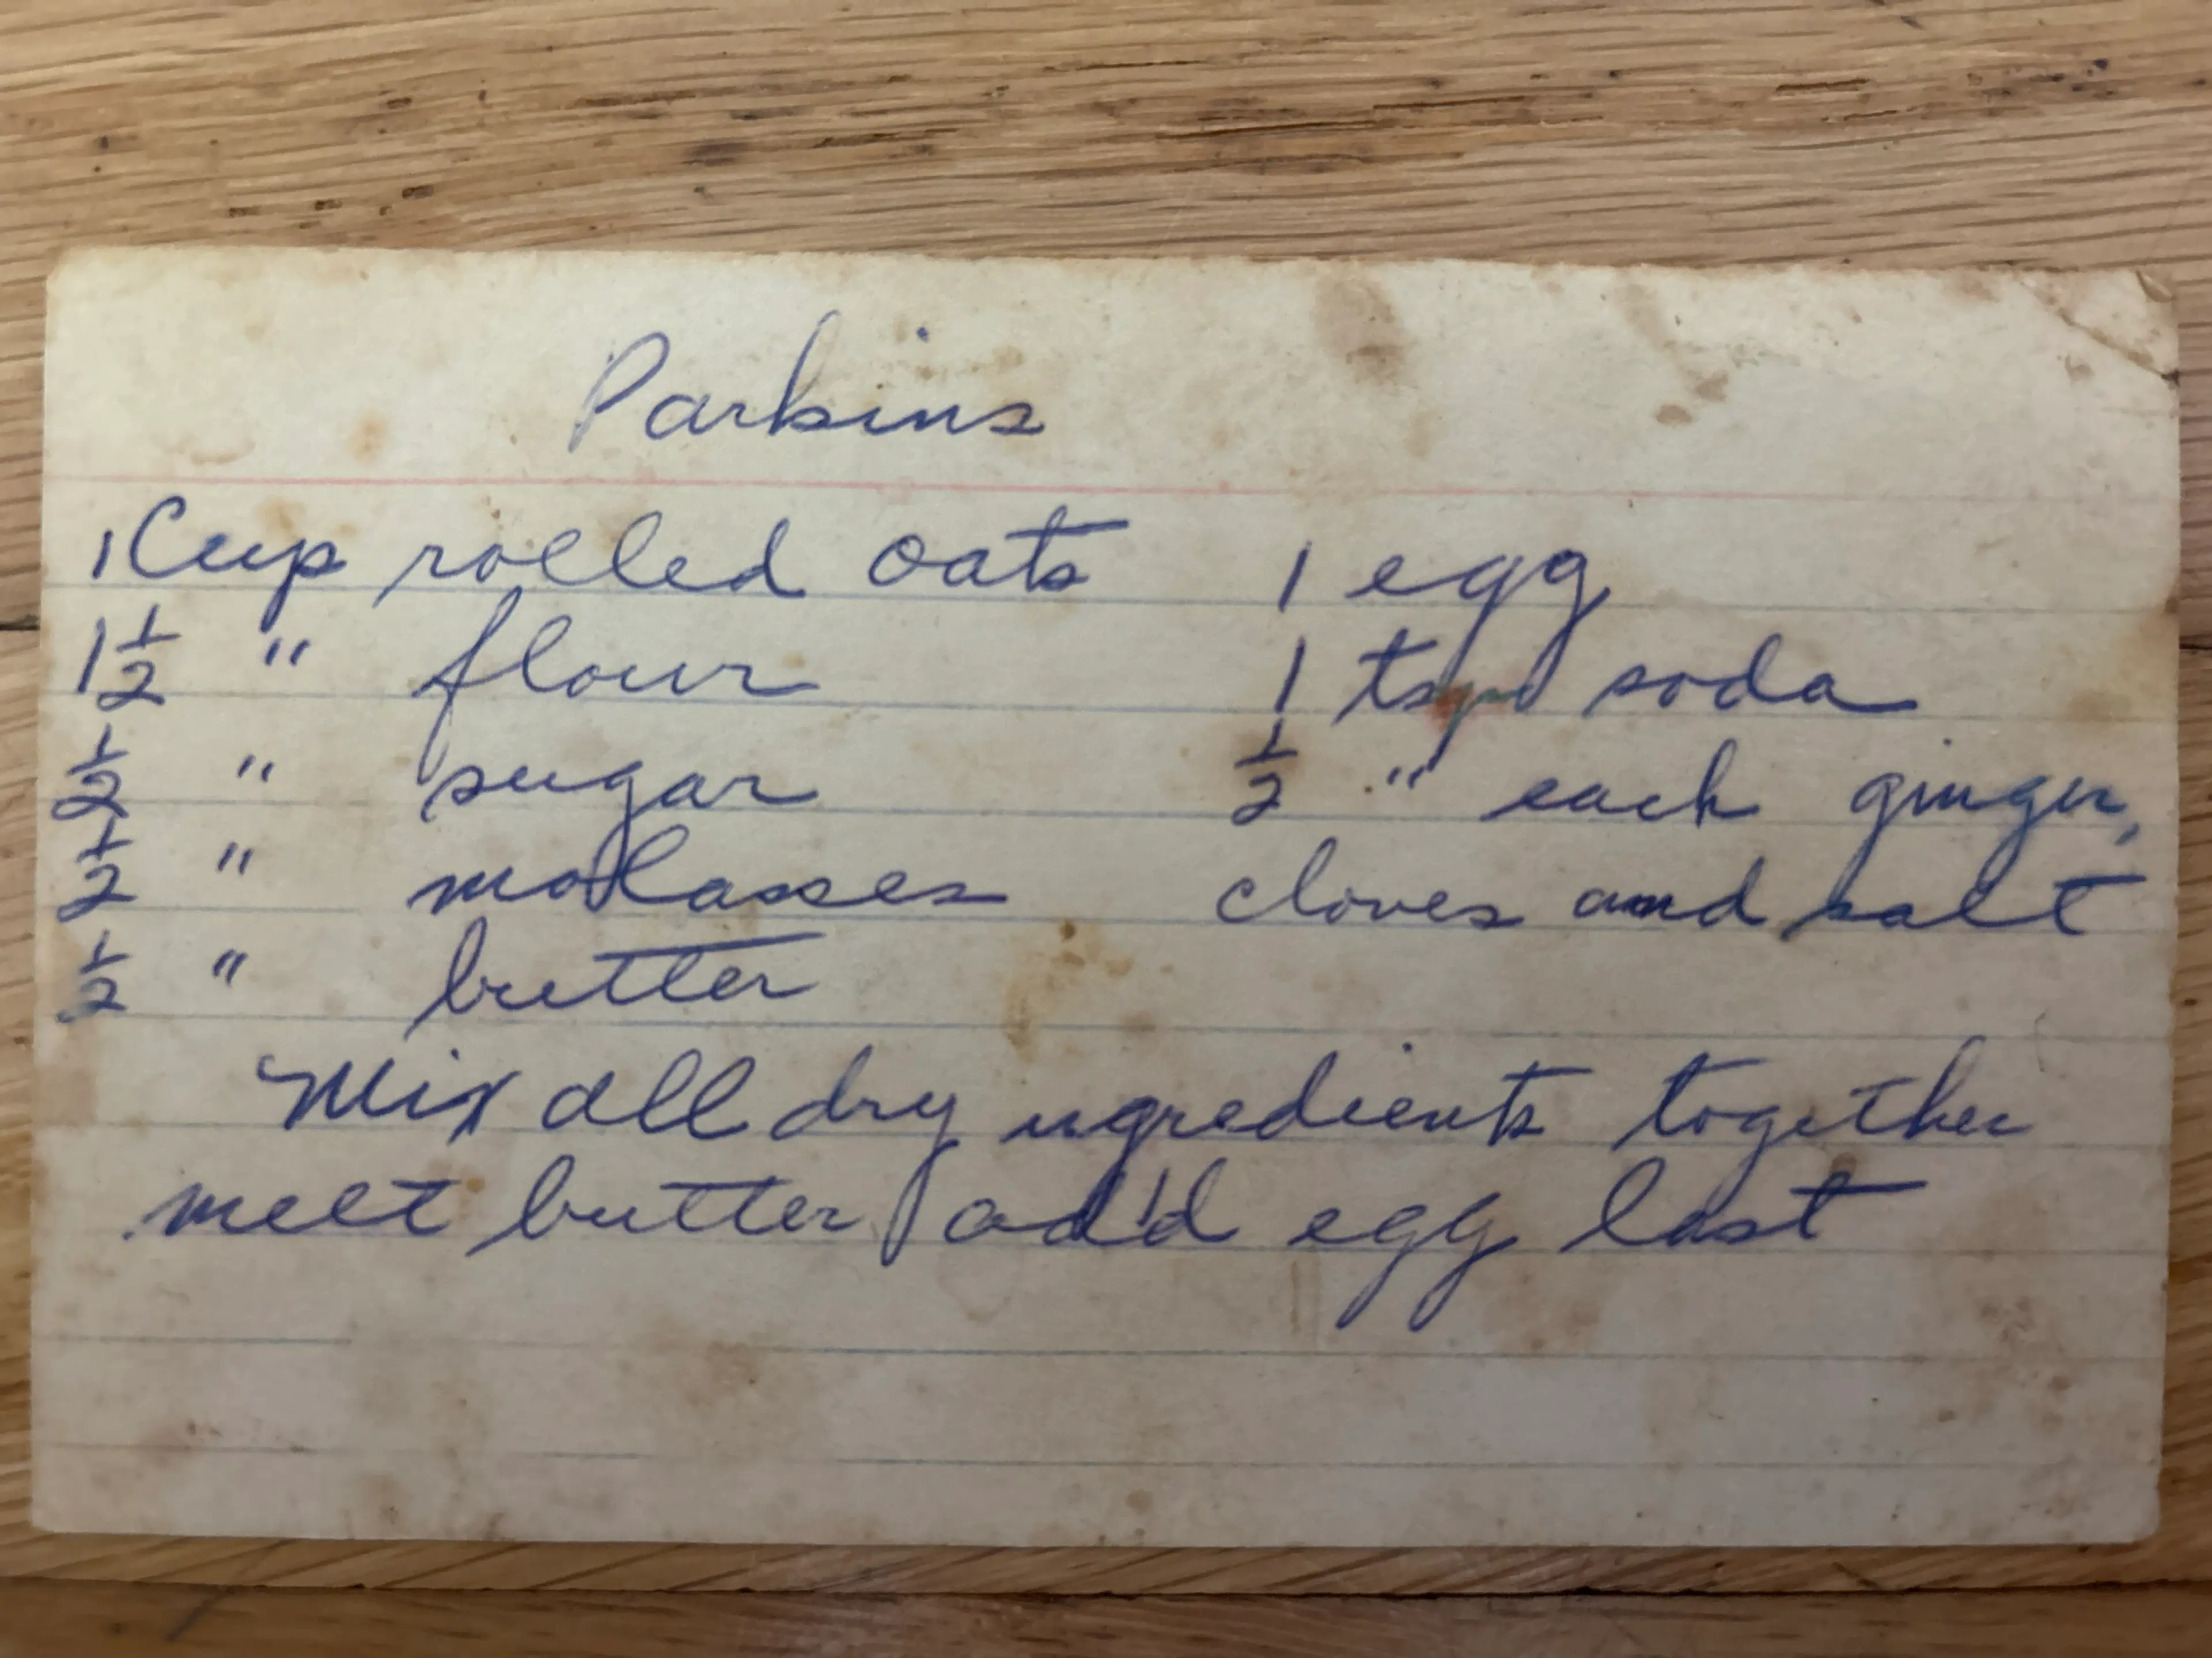 Parkins
1 Cup rolled oats
1 1/2 " flour
1/2 " sugar
1/2 " molasses
1/2 " butter
1 egg
1 tsp soda
1/2 " each ginger,
cloves and salt
Mix all dry ingredients together
melt butter add egg last